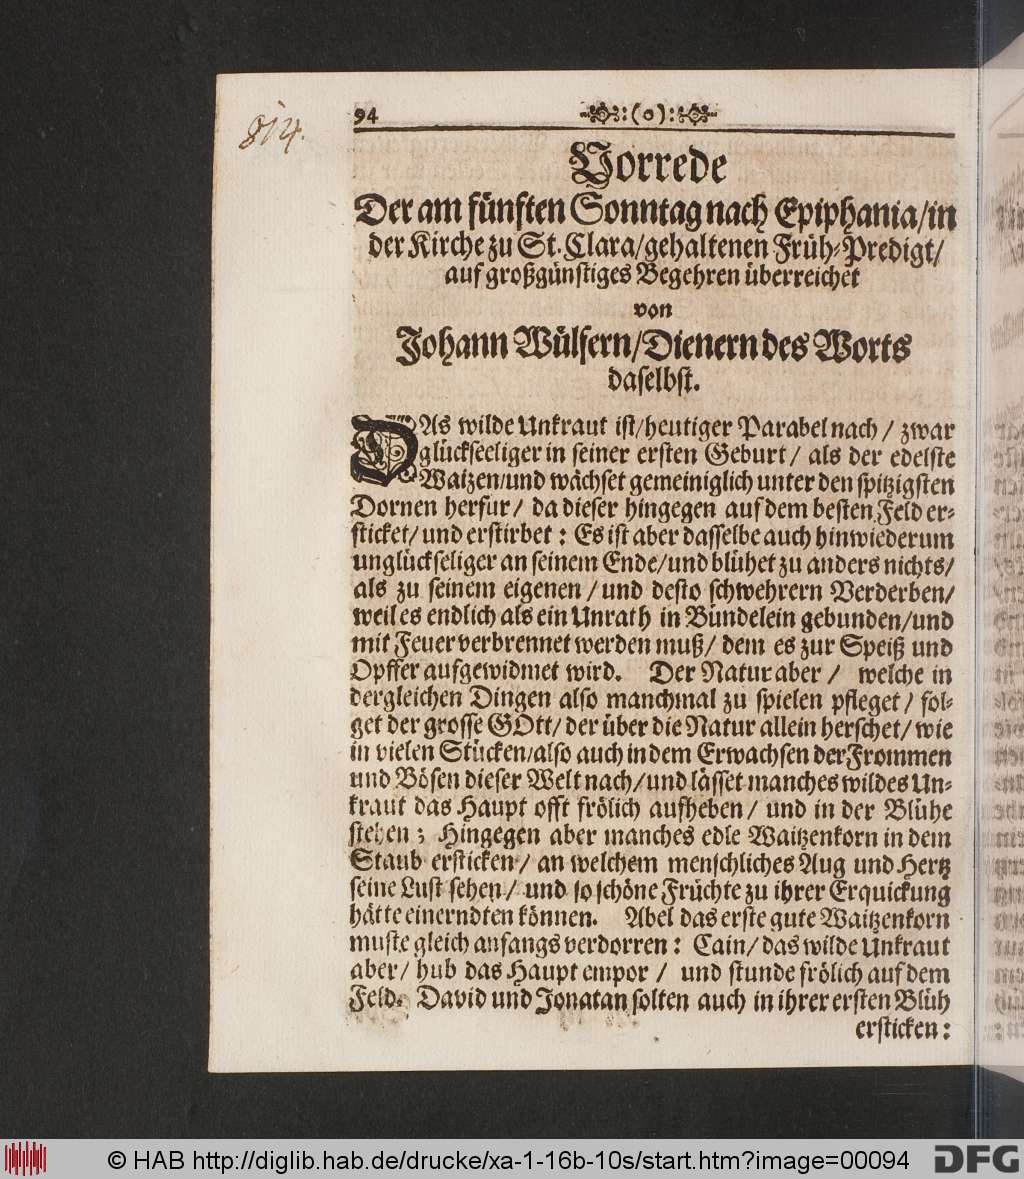 814.
94 :(o):
Vorrede
Der am fünften Sonntag nach Epiphania/in
der Kirche zu St. Clara/gehaltenen Früh-Predigt/
auf großgünstiges Begehren überreichet
von
Johann Wülfern/Dienern des Worts
daselbst.
DAs wilde Unkraut ist/heutiger Parabel nach/ zwar
glückseeliger in seiner ersten Geburt/ als der edelste
Waizen/und wächset gemeiniglich unter den spitzigsten
Dornen herfur/ da dieser hingegen auf dem besten Feld er-
sticket/ und erstirbet: Es ist aber dasselbe auch hinwiederum
unglückseliger an seinem Ende/und blühet zu anders nichts/
als zu seinem eigenen/ und desto schwehrern Verderben/
weil es endlich als ein Unrath in Bündelein gebunden/und
mit Feuer verbrennet werden muß/ dem es zur Speiß und
Opffer aufgewidmet wird. Der Natur aber/ welche in
dergleichen Dingen also manchmal zu spielen pfleget/ fol-
get der grosse GOtt/ der über die Natur allein herschet/ wie
in vielen Stücken/also auch in dem Erwachsen der Frommen
und Bösen dieser Welt nach/und lässet manches wildes Un-
kraut das Haupt offt frölich aufheben/ und in der Blühe
stehen; Hingegen aber manches edle Waitzenkorn in dem
Staub ersticken/ an welchem menschliches Aug und Hertz
seine Lust sehen/ und so schöne Früchte zu ihrer Erquickung
hätte einerndten können. Abel das erste gute Waitzenkorn
muste gleich anfangs verdorren: Cain/ das wilde Unkraut
aber/ hub das Haupt empor/ und stunde frölich auf dem
Feld. David und Jonatan solten auch in ihrer ersten Blüh
ersticken:
© HAB http://diglib.hab.de/drucke/xa-1-16b-10s/start.htm?image=00094
DFG